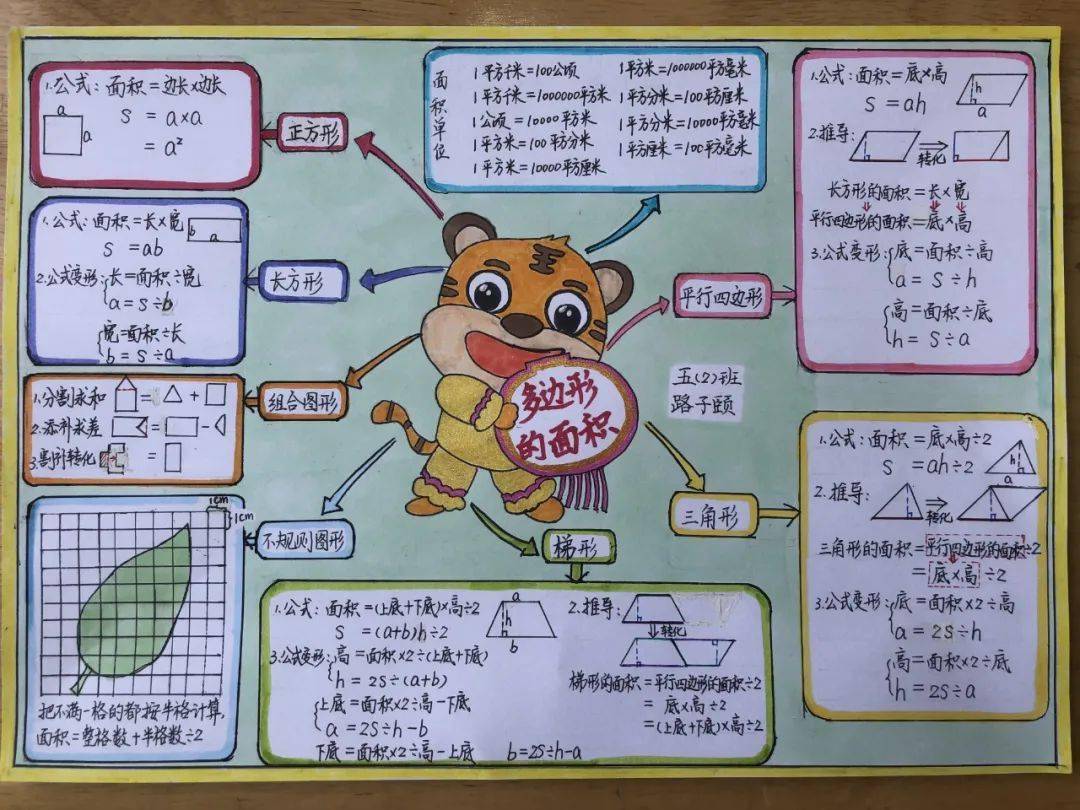 多边形
的面积
五(2)班
路子颐
正方形
1.公式：面积＝边长×边长
S = a×a
= a²
a
a
长方形
1.公式：面积＝长×宽
S = ab
b
a
2.公式变形：长＝面积÷宽
a = S÷b
宽＝面积÷长
b = S÷a
组合图形
1.分割求和 = +
2.添补求差 = -
3.割补转化 =
不规则图形
1cm
1cm
把不满一格的都按半格计算,
面积＝整格数＋半格数÷2
面积单位
1平方千米=100公顷
1平方千米=1000000平方米
1公顷=10000平方米
1平方米=100平方分米
1平方米=10000平方厘米
1平方米=1000000平方毫米
1平方分米=100平方厘米
1平方分米=10000平方毫米
1平方厘米=100平方毫米
平行四边形
1.公式：面积＝底×高
S = ah
h
a
2.推导：
转化
长方形的面积＝长×宽
平行四边形的面积＝底×高
3.公式变形：底＝面积÷高
a = S÷h
高＝面积÷底
h = S÷a
三角形
1.公式：面积＝底×高÷2
S = ah÷2
h
a
2.推导：
转化
三角形的面积＝平行四边形的面积÷2
＝底×高÷2
3.公式变形：底＝面积×2÷高
a = 2S÷h
高＝面积×2÷底
h = 2S÷a
梯形
1.公式：面积＝(上底+下底)×高÷2
S = (a+b)h÷2
a
h
b
3.公式变形：高＝面积×2÷(上底+下底)
h = 2S÷(a+b)
上底＝面积×2÷高-下底
a = 2S÷h-b
下底＝面积×2÷高-上底 b=2S÷h-a
2.推导：
转化
梯形的面积＝平行四边形的面积÷2
＝底×高÷2
＝(上底+下底)×高÷2